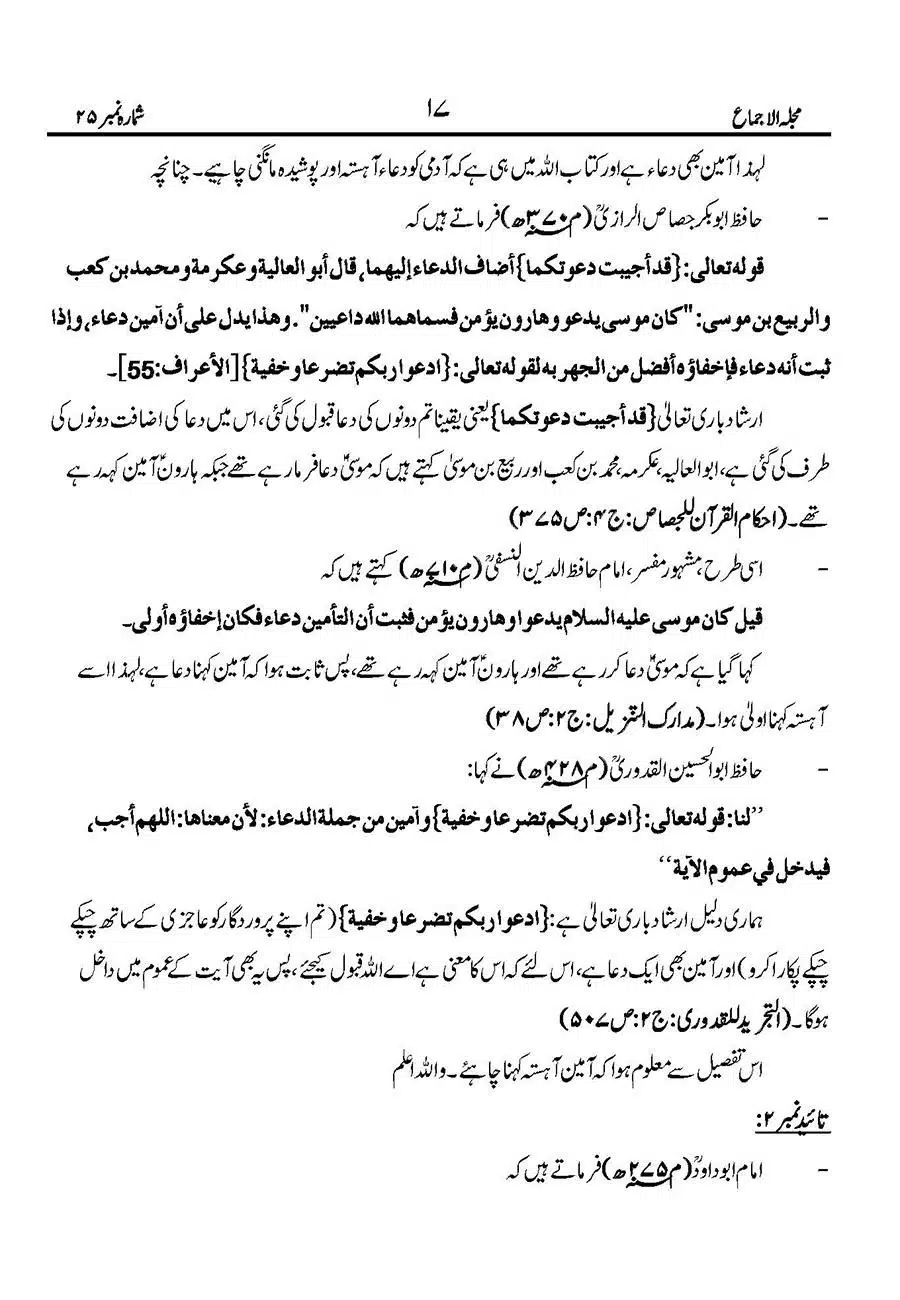 مجلہ الاجماع ۱۷ شمارہ نمبر ۲۵
لہذا آمین بھی دعاء ہے اور کتاب اللہ میں ہی ہے کہ آدمی کو دعاء آہستہ اور پوشیدہ مانگنی چاہیے۔ چنانچہ
- حافظ ابو بکر جصاص الرازیؒ (م۳۷۰ھ) فرماتے ہیں کہ
قوله تعالى: {قد أجيبت دعوتكما} أضاف الدعاء إليهما، قال أبو العالية وعكرمة ومحمد بن كعب
والربيع بن موسى: "كان موسى يدعو وهارون يؤمن فسماهما الله داعيين". وهذا يدل على أن آمين دعاء، وإذا
ثبت أنه دعاء فإخفاؤه أفضل من الجهر به لقوله تعالى: {ادعوا ربكم تضرعا وخفية} [الأعراف: 55]۔
ارشاد باری تعالیٰ {قد أجيبت دعوتكما} یعنی یقینا تم دونوں کی دعا قبول کی گئی، اس میں دعا کی اضافت دونوں کی
طرف کی گئی ہے، ابو العالیہ، عکرمہ، محمد بن کعب اور ربیع بن موسیٰ کہتے ہیں کہ موسیٰؑ دعا فرما رہے تھے جبکہ ہارونؑ آمین کہہ رہے
تھے۔ (احکام القرآن للجصاص: ج۴: ص۳۷۵)
- اسی طرح، مشہور مفسر، امام حافظ الدین النسفیؒ (م۷۱۰ھ) کہتے ہیں کہ
قيل كان موسى عليه السلام يدعوا وهارون يؤمن فثبت أن التأمين دعاء فكان إخفاؤه أولى۔
کہا گیا ہے کہ موسیٰؑ دعا کر رہے تھے اور ہارونؑ آمین کہہ رہے تھے، پس ثابت ہوا کہ آمین کہنا دعا ہے، لہذا اسے
آہستہ کہنا اولیٰ ہوا۔ (مدارک التنزیل: ج۲: ص۳۸)
- حافظ ابو الحسین القدوریؒ (م۴۲۸ھ) نے کہا:
’’لنا: قوله تعالى: {ادعوا ربكم تضرعا وخفية} وآمين من جملة الدعاء: لأن معناها: اللهم أجب،
فيدخل في عموم الآية‘‘
ہماری دلیل ارشاد باری تعالیٰ ہے: {ادعوا ربكم تضرعا وخفية} (تم اپنے پروردگار کو عاجزی کے ساتھ چپکے
چپکے پکارا کرو) اور آمین بھی ایک دعا ہے، اس لئے کہ اس کا معنی ہے اے اللہ قبول کیجئے، پس یہ بھی آیت کے عموم میں داخل
ہوگا۔ (التجرید للقدوری: ج۲: ص۵۰۷)
اس تفصیل سے معلوم ہوا کہ آمین آہستہ کہنا چاہئے۔ واللہ اعلم
تائید نمبر ۲:
- امام ابو داودؒ (م۲۷۵ھ) فرماتے ہیں کہ